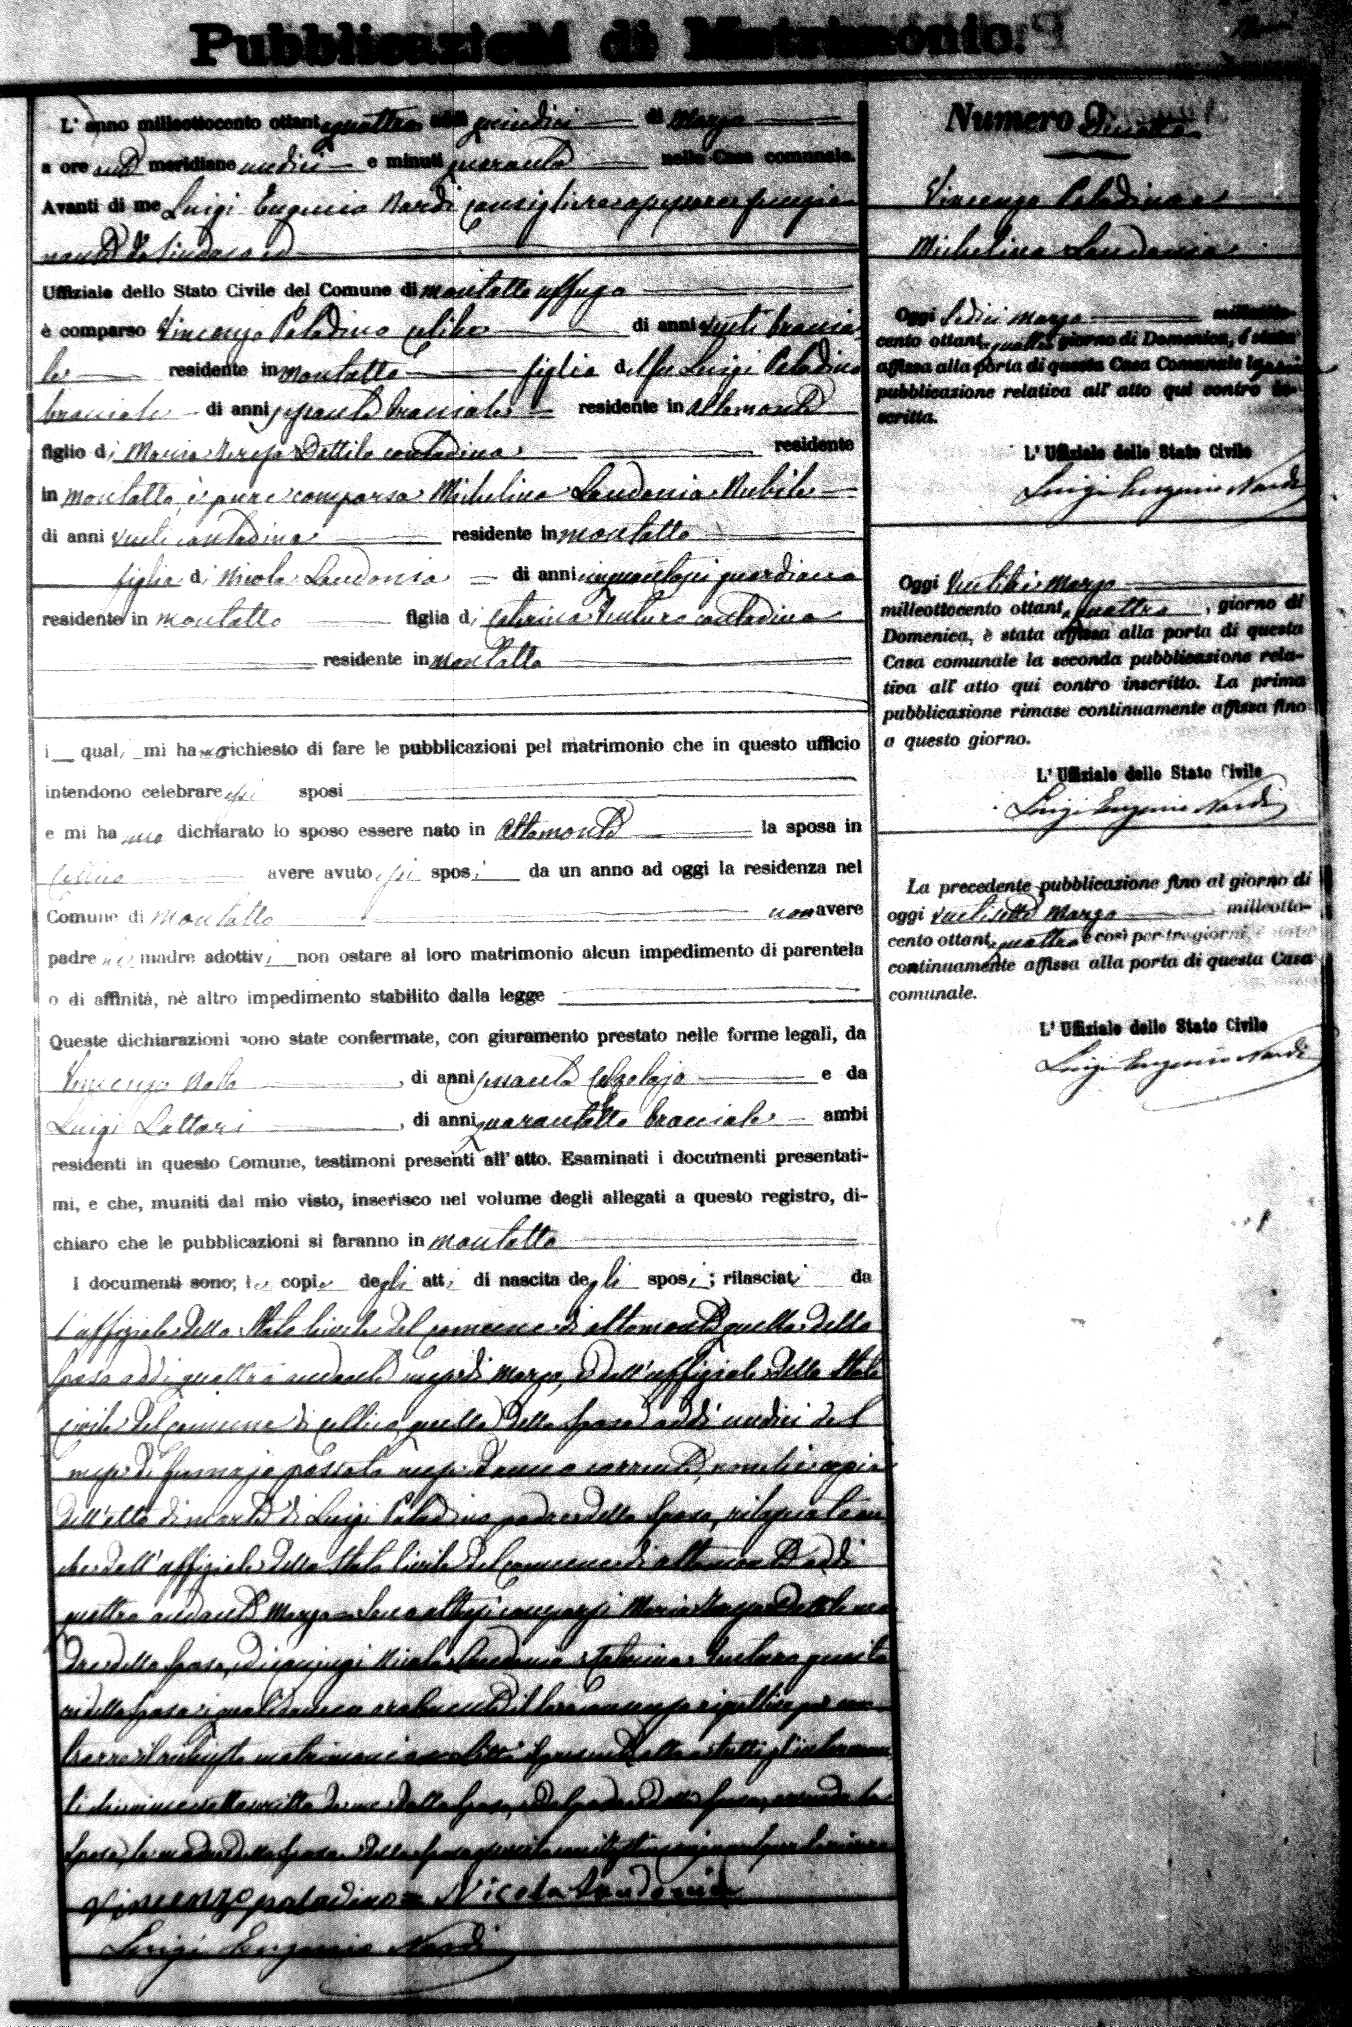 Pubblicazioni di Matrimonio.
L'anno milleottocento ottantaquattro addì quindici di Marzo
a ore anti meridiane undici e minuti quaranta nella Casa comunale.
Avanti di me Luigi Eugenio Nardi Consigliere assessore funzio
nante da Sindaco ed
Uffiziale dello Stato Civile del Comune di Montalto Uffugo
è comparso Vincenzo Paladino celibe di anni venti braccia
le residente in Montalto figlio del fu Luigi Paladino
bracciale di anni sessanta bracciale residente in Altomonte
figlio di Maria Teresa Dattilo contadina residente
in Montalto, è pure comparsa Michelina Laudonia Nubile
di anni venti contadina residente in Montalto
figlia di Nicola Laudonia di anni cinquantasei guardiano
residente in Montalto figlia di Caterina Venturo contadina
residente in Montalto
i quali mi hanno richiesto di fare le pubblicazioni pel matrimonio che in questo ufficio
intendono celebrare essi sposi
e mi hanno dichiarato lo sposo essere nato in Altomonte la sposa in
Cellico avere avuto essi sposi da un anno ad oggi la residenza nel
Comune di Montalto non avere
padre nè madre adottivi non ostare al loro matrimonio alcun impedimento di parentela
o di affinità, nè altro impedimento stabilito dalla legge
Queste dichiarazioni sono state confermate, con giuramento prestato nelle forme legali, da
Vincenzo di anni Calzolajo e da
Luigi Lattari, di anni quarantotto bracciale ambi
residenti in questo Comune, testimoni presenti all'atto. Esaminati i documenti presentati-
mi, e che, muniti dal mio visto, inserisco nel volume degli allegati a questo registro, di-
chiaro che le pubblicazioni si faranno in Montalto
I documenti sono; le copie degli atti di nascita degli sposi; rilasciati da
l'uffiziale dello Stato Civile del comune di Altomonte quella dello
sposo addì quattro andante mese di Marzo, e dall'uffiziale dello Stato
civile del comune di Cellico quella della sposa addì undici del
mese di Gennajo passato mese anno corrente, nonché copia
dell'atto di morte di Luigi Paladino padre dello sposo, rilasciata an
che dall'uffiziale dello Stato Civile del comune di Altomonte addì
quattro andante Marzo. Sono altresì comparsi Maria Teresa Dattilo ma
dre dello sposo, ed i coniugi Nicola Laudonia e Caterina Venturo genito
ri della sposa i quali danno oralmente il loro consenso rispettivo per con
trarre il richiesto matrimonio. Letto il presente atto a tutti gl'intervenu
ti
Vincenzo paladino Nicola Laudonia
Luigi Eugenio Nardi
Numero Quattro
Vincenzo Paladino e
Michelina Laudonia
Oggi sedici Marzo milleotto-
cento ottantaquattro giorno di Domenica, è stata
affissa alla porta di questa Casa Comunale la prima
pubblicazione relativa all'atto qui contro in-
scritto.
L'Uffiziale dello Stato Civile
Luigi Eugenio Nardi
Oggi Ventitrè Marzo
milleottocento ottantaquattro, giorno di
Domenica, è stata affissa alla porta di questa
Casa comunale la seconda pubblicazione rela-
tiva all'atto qui contro inscritto. La prima
pubblicazione rimase continuamente affissa fino
a questo giorno.
L'Uffiziale dello Stato Civile
Luigi Eugenio Nardi
La precedente pubblicazione fino al giorno di
oggi ventisette Marzo milleotto-
cento ottantaquattro e così per tre giorni, è stata
continuamente affissa alla porta di questa Casa
comunale.
L'Uffiziale dello Stato Civile
Luigi Eugenio Nardi